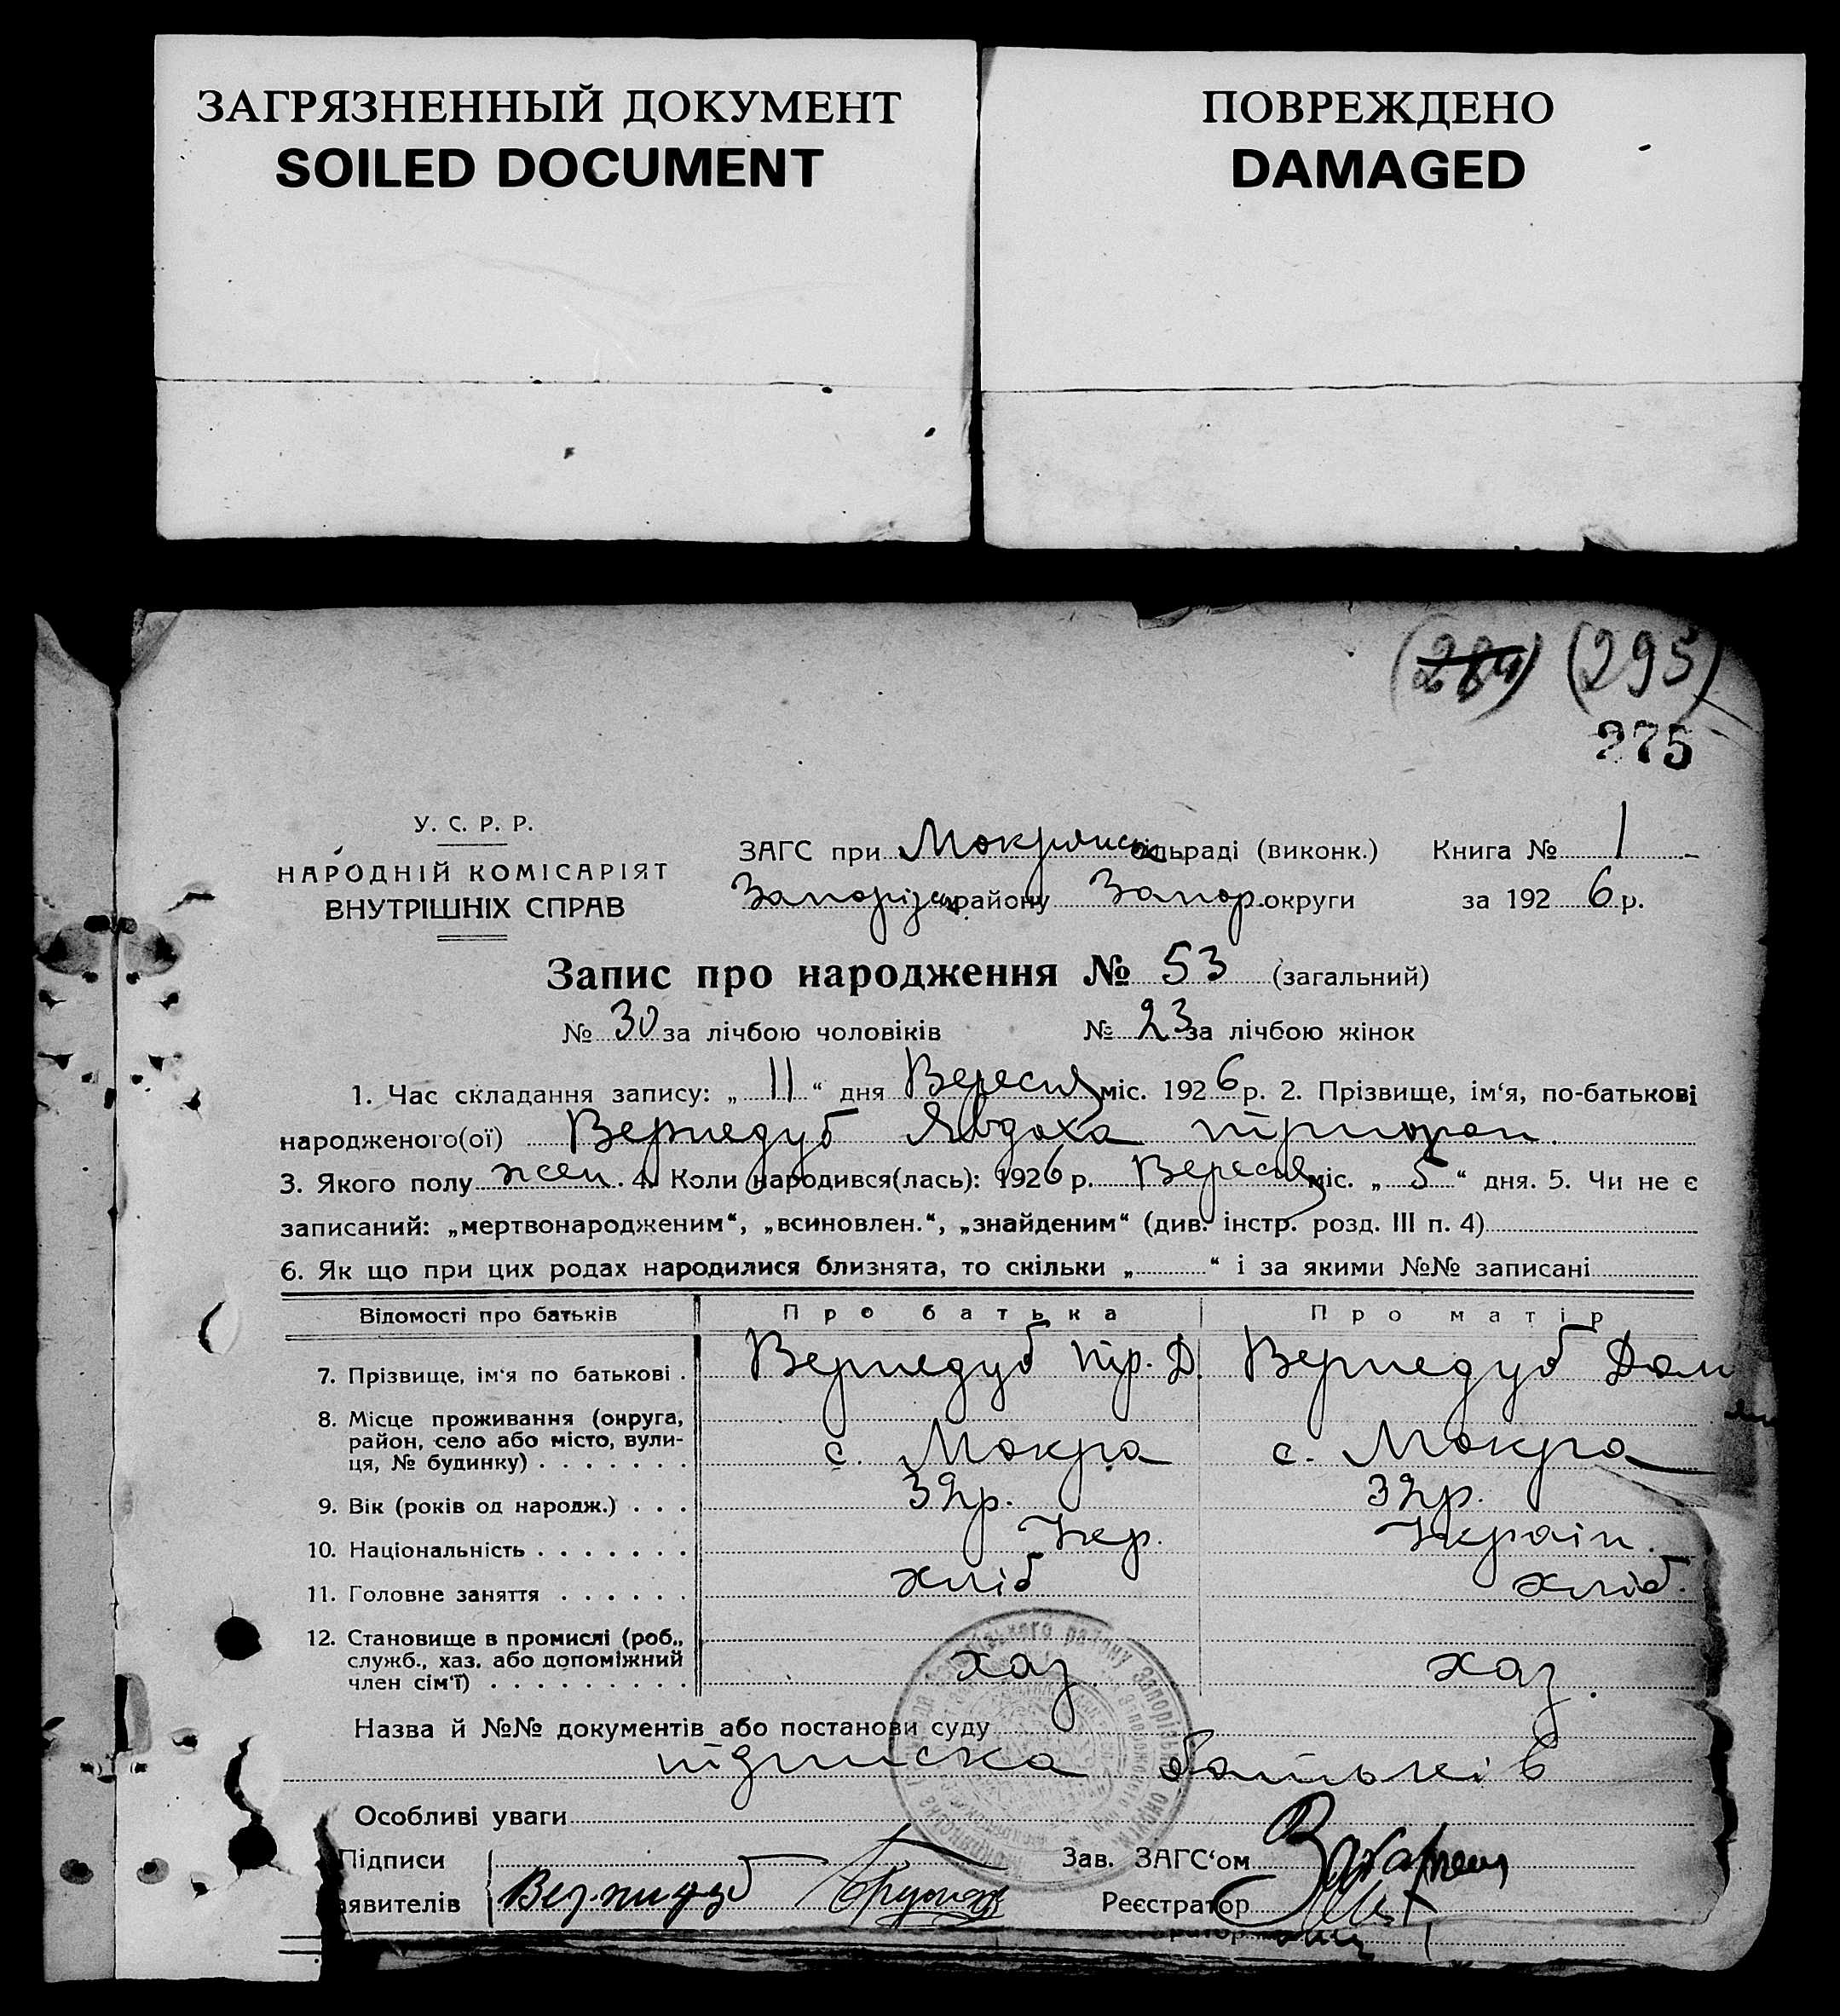 ЗАГРЯЗНЕННЫЙ ДОКУМЕНТ
SOILED DOCUMENT
ПОВРЕЖДЕНО
DAMAGED
(284) (295)
275
У. С. Р. Р.
НАРОДНІЙ КОМІСАРІЯТ
ВНУТРІШНІХ СПРАВ
ЗАГС при Мокрянск сільраді (виконк.) Книга № 1
Запорізьк району Запор. округи за 1926 р.
Запис про народження № 53 (загальний)
№ 30 за лічбою чоловіків № 23 за лічбою жінок
1. Час складання запису: „11“ дня Вересня міс. 1926 р. 2. Прізвище, ім‘я, по-батькові
народженого(ої) Вернедуб Явдоха
3. Якого полу жен. 4. Коли народився(лась): 1926 р. Вересня міс. „5“ дня. 5. Чи не є
записаний: „мертвонародженим“, „всиновлен.“, „знайденим“ (див. інстр. розд. III п. 4)
6. Як що при цих родах народилися близнята, то скільки „ “ і за якими №№ записані
Відомості про батьків Про батька Про матір
7. Прізвище, ім‘я по батькові . Вернедуб Гр. Д. Вернедуб Дом
8. Місце проживання (округа,
район, село або місто, вули-
ця, № будинку) . . . . . . . с. Мокра с. Мокра
9. Вік (років од народж.) . . . 32 р. 32 р.
10. Національність . . . . . . . Укр. Україн.
11. Головне заняття . . . . . . хліб хліб.
12. Становище в промислі (роб.,
служб., хаз. або допоміжний
член сім‘ї) . . . . . . . . . хаз. хаз.
Назва й №№ документів або постанови суду
підписка батьків
Особливі уваги
Підписи Зав. ЗАГС‘ом
явителів Вернидуб Реєстратор